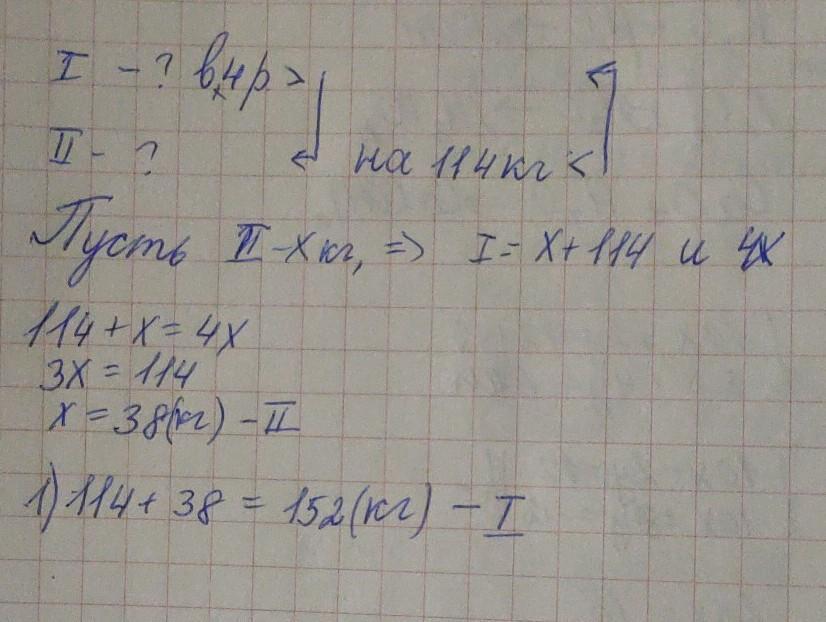 I - ? в 4 р. >
II - ? на 114 кг <
Пусть II - х кг, => I = х + 114 и 4х
114 + х = 4х
3х = 114
х = 38(кг) - II
1) 114 + 38 = 152(кг) - I